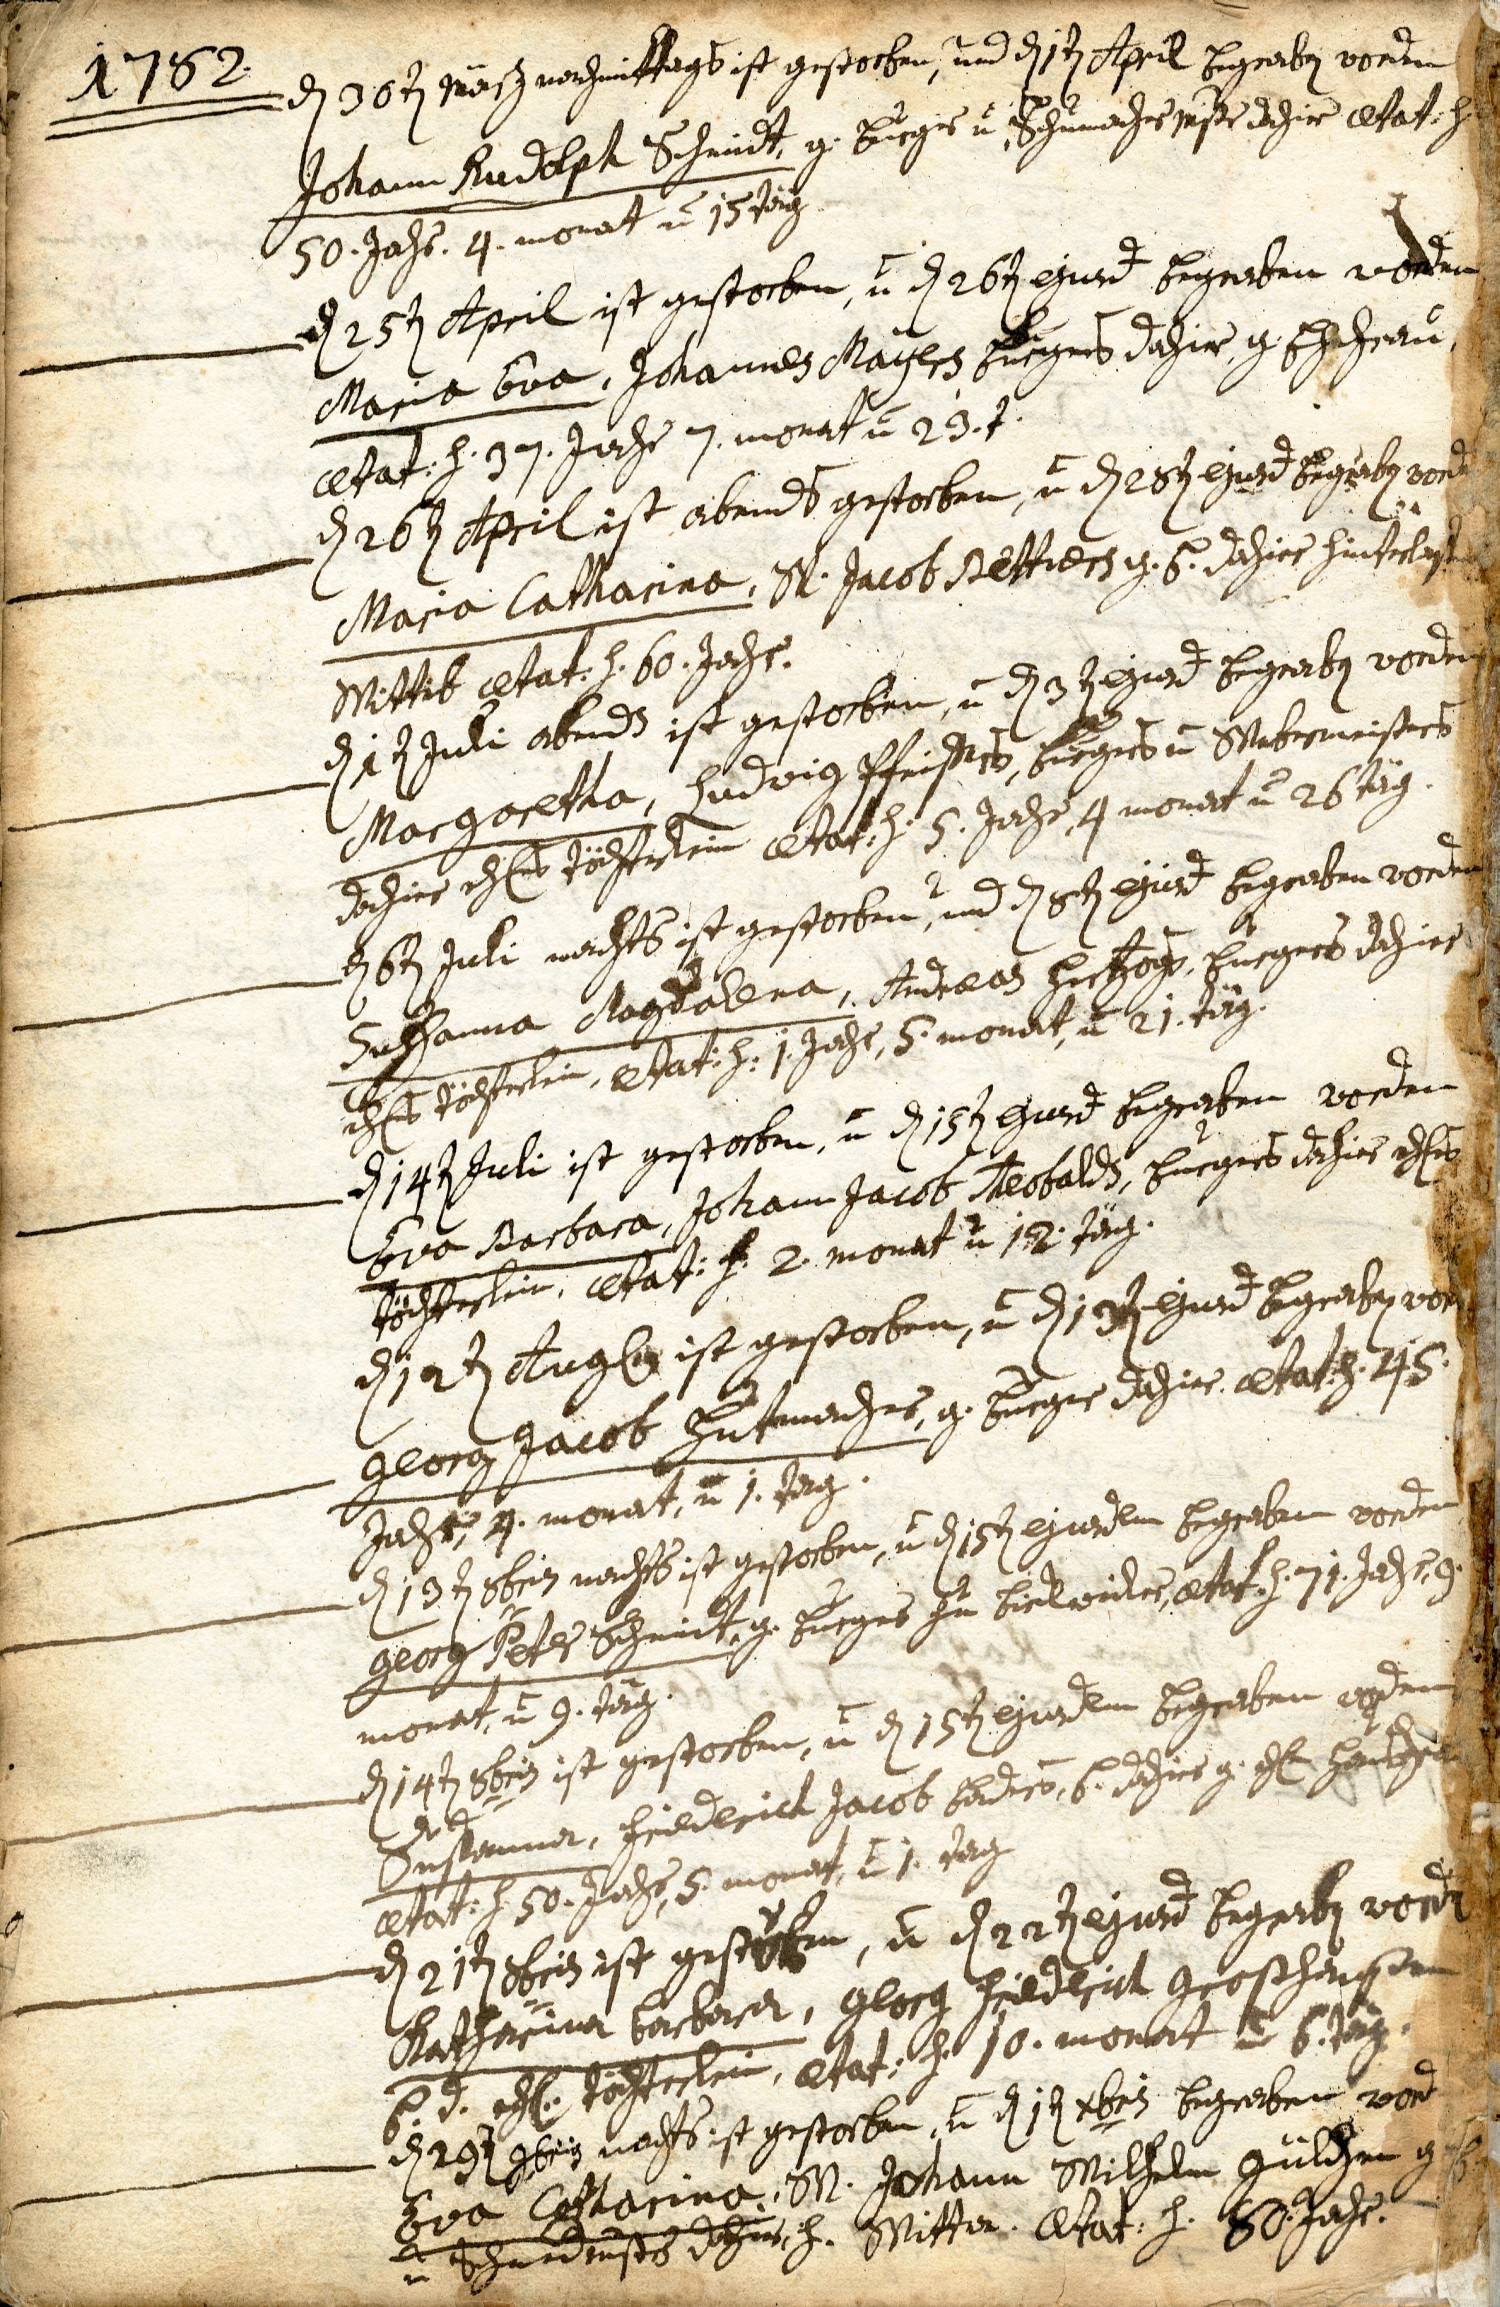 1762.
d 30t Märtz nachmittags ist gestorben, und d 1t April begraben worden
Johann Rudolph Schmidt, g. burger u. Schumacher mstr dahier ætat: h.
50. Jahr. 4. monat u 15 täg
d 25t April ist gestorben, u d 26t ejusd begraben worden
Maria Eva, Johannes Mayers burgers dahier, g. Ehefrau,
ætat: h. 37. Jahr 7. monat u 23. t.
d 26t April ist abends gestorben, u d 28t ejusd begrabn word
Maria Catharina, Jacob Bettiers g. b. dahier hinterlass
Wittib ætat: h. 60. Jahr.
d 1t Juli abends ist gestorben, u d 3t ejusd begrabn worden
Margaretha, Ludwig Pfeiffers, burgers u Webermeisters
dahier ehl. töchterlein ætat: h. 5. Jahr, 4 monat u 26 täg.
d 6t Juli nachts ist gestorben, und d 8t ejusd begraben worden
Susanna Magdalena, Andreas Hertzogs, burgers dahier
ehl. töchterlein, ætat: h: 1. Jahr, 5. monat, u 21. täg.
d 14t Juli ist gestorben, u d 15t ejusd begraben worden
Eva Barbara, Johann Jacob Theobalds, burgers dahier ehl.
töchterlein, ætat: h. 2. monat u 12. täg.
d 12t Aug ist gestorben, u d 13t ejusd begrabn word
Georg Jacob Hutmacher, g. burger dahier. ætat: h. 45.
Jahr, 4. monat, u 1. tag.
d 13t 8bris nachts ist gestorben, u d 15t ejusdem begraben worden
Georg Peter Schmidt, g. burger zu, ætat: h. 71. Jahr, 9.
monat, u 9. täg.
d 14t 8bris ist gestorben, u d 15t ejusdem begraben worden
Susanna, Friedrich Jacob baders, b. dahier g. ehl. haußfrau
ætat: h. 50. Jahr, 5. monat, u 1. tag
d 21t 8bris ist gestorben, u d 22t ejusd begrabn word
Katharina barbara, Georg Friedrich
b. d. ehl. töchterlein, ætat: h. 10. monat u 6. täg.
d 29t 9bris nachts ist gestorben, u d 1t xbris begraben word
Eva Catharina, Johann Wilhelm g b.
u Schneidmstrs dahier, h. Wittwe. ætat: h. 80. Jahr.